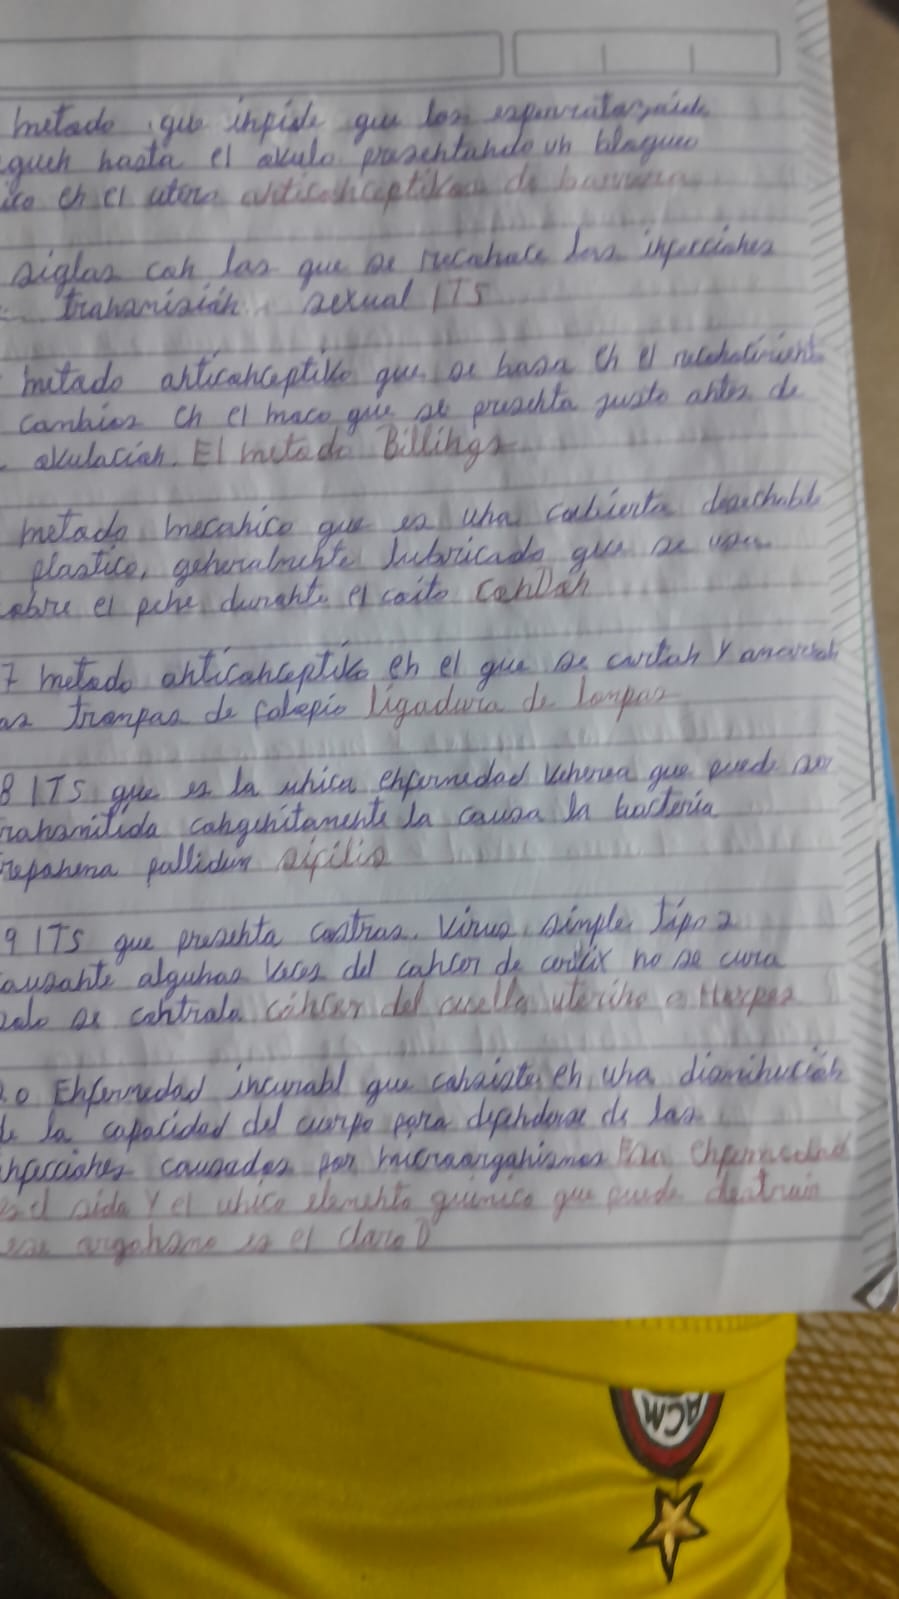 metado que inpide que los espermatozoide
guen hasta el ovulo presentando un bloqueo
ico en el utero anticonceptivos de barrera
siglas con las que se reconoce las infecciones
transmisión sexual ITS
metado anticonceptivo que se basa en el reconocimient
cambios en el moco que se presenta justo antes de
ovulación. El metado Billings
metado mecanico que es una cubierta desechabl
plastico, generalmente lubricado que se usa
obre el pene durante el coito ConDón
7 metado anticonceptivo en el que se cortan y amarran
as trompas de falopio ligadura de tompas
8 ITS que es la unica enfermedad venerea que puede ser
ransmitida congenitamente la causa la bacteria
reponema pallidum sifilis
9 ITS que presenta costras. Virus simple tipo 2
ausante algunas veces del cancer de cervix no se cura
solo se controla cáncer del cuello uterino o Herpes
10 Enfermedad incurabl que consiste en una disminución
de la capacidad del cuerpo para defenderse de las
nfecciones causadas por microorganismos enfermedad
es el sida y el unico elemento quimico que puede destruir
ese organismo es el cloro
ACM